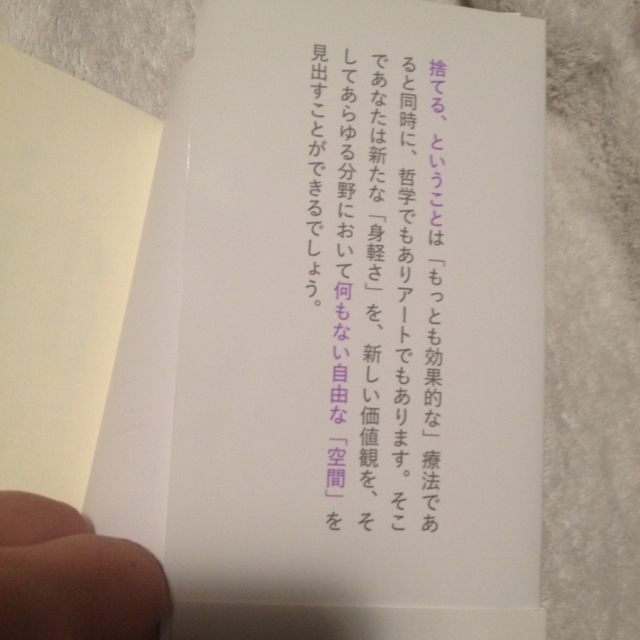 捨てる、ということは「もっとも効果的な」療法であ
ると同時に、哲学でもありアートでもあります。そこ
であなたは新たな「身軽さ」を、新しい価値観を、そ
してあらゆる分野において何もない自由な「空間」を
見出すことができるでしょう。